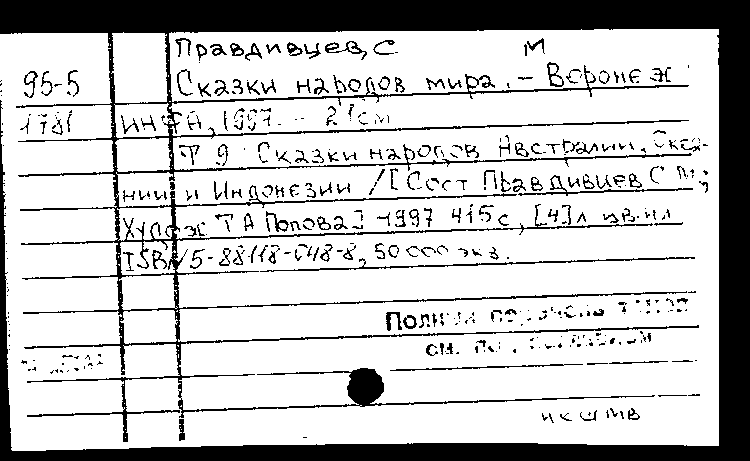 Правдивцев, С М
95-5 Сказки народов мира. - Воронеж
1781 ИНФА, 1997. - 21см
Т 9 Сказки народов Австралии, Океа-
нии и Индонезии / [Сост Правдивцев С М;
Худож Т А Попова] - 1997 415 с, [4] л цв. ил
ISBN 5-88118-048-8, 50 000 экз.
Полный перечень
см. по